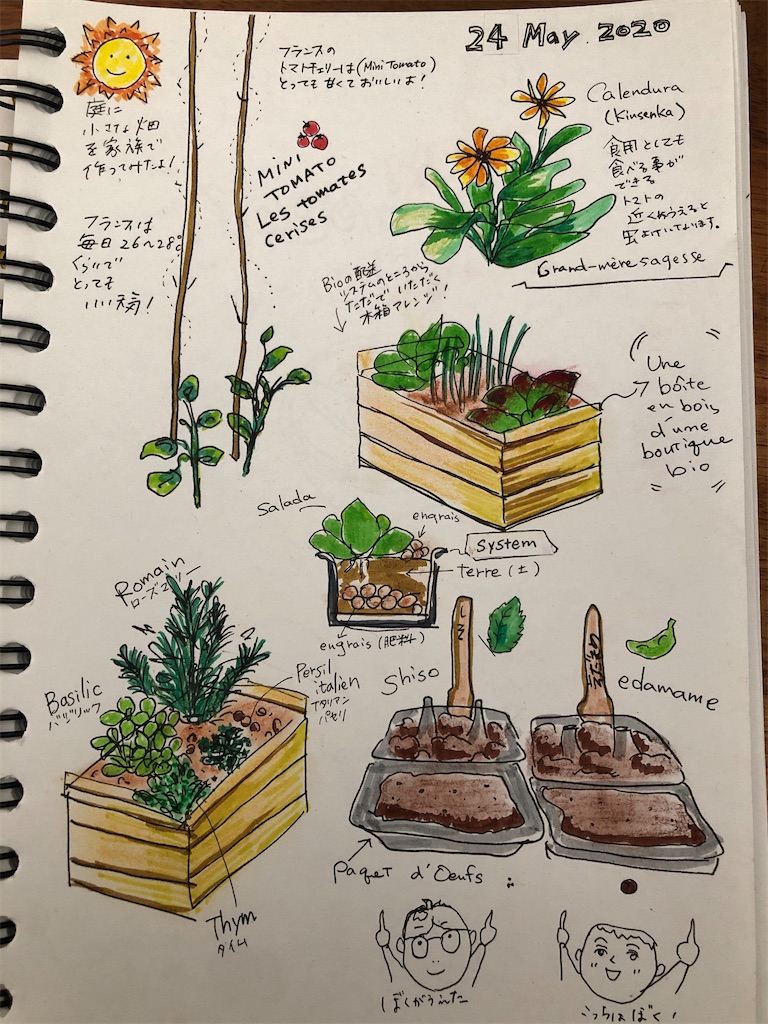 24 May. 2020
フランスの
トマトチェリーは(Mini Tomato)
とっても甘くておいしいよ!
庭に
小さな畑
を家族で
作ってみたよ!
フランスは
毎日26〜28℃
ぐらいで
とっても
いい天気!
MINI
TOMATO
Les tomates
cerises
Calendura
(Kinsenka)
食用としても
食べる事が
できる
トマトの
近くにうえると
虫よけになります。
Grand-mère sagesse
Bioの配送
システムのところから
ただでいただく
木箱アレンジ!
Une
boîte
en bois
d'une
boutique
bio
Salada
engrais
System
terre (土)
engrais (肥料)
Romain
ローズマリー
Basilic
バジリック
Persil
italien
イタリアン
パセリ
Thym
タイム
しそ
Shiso
えだまめ
edamame
Paquet d'Oeufs
ぼくがうえた
こっちはぼく!